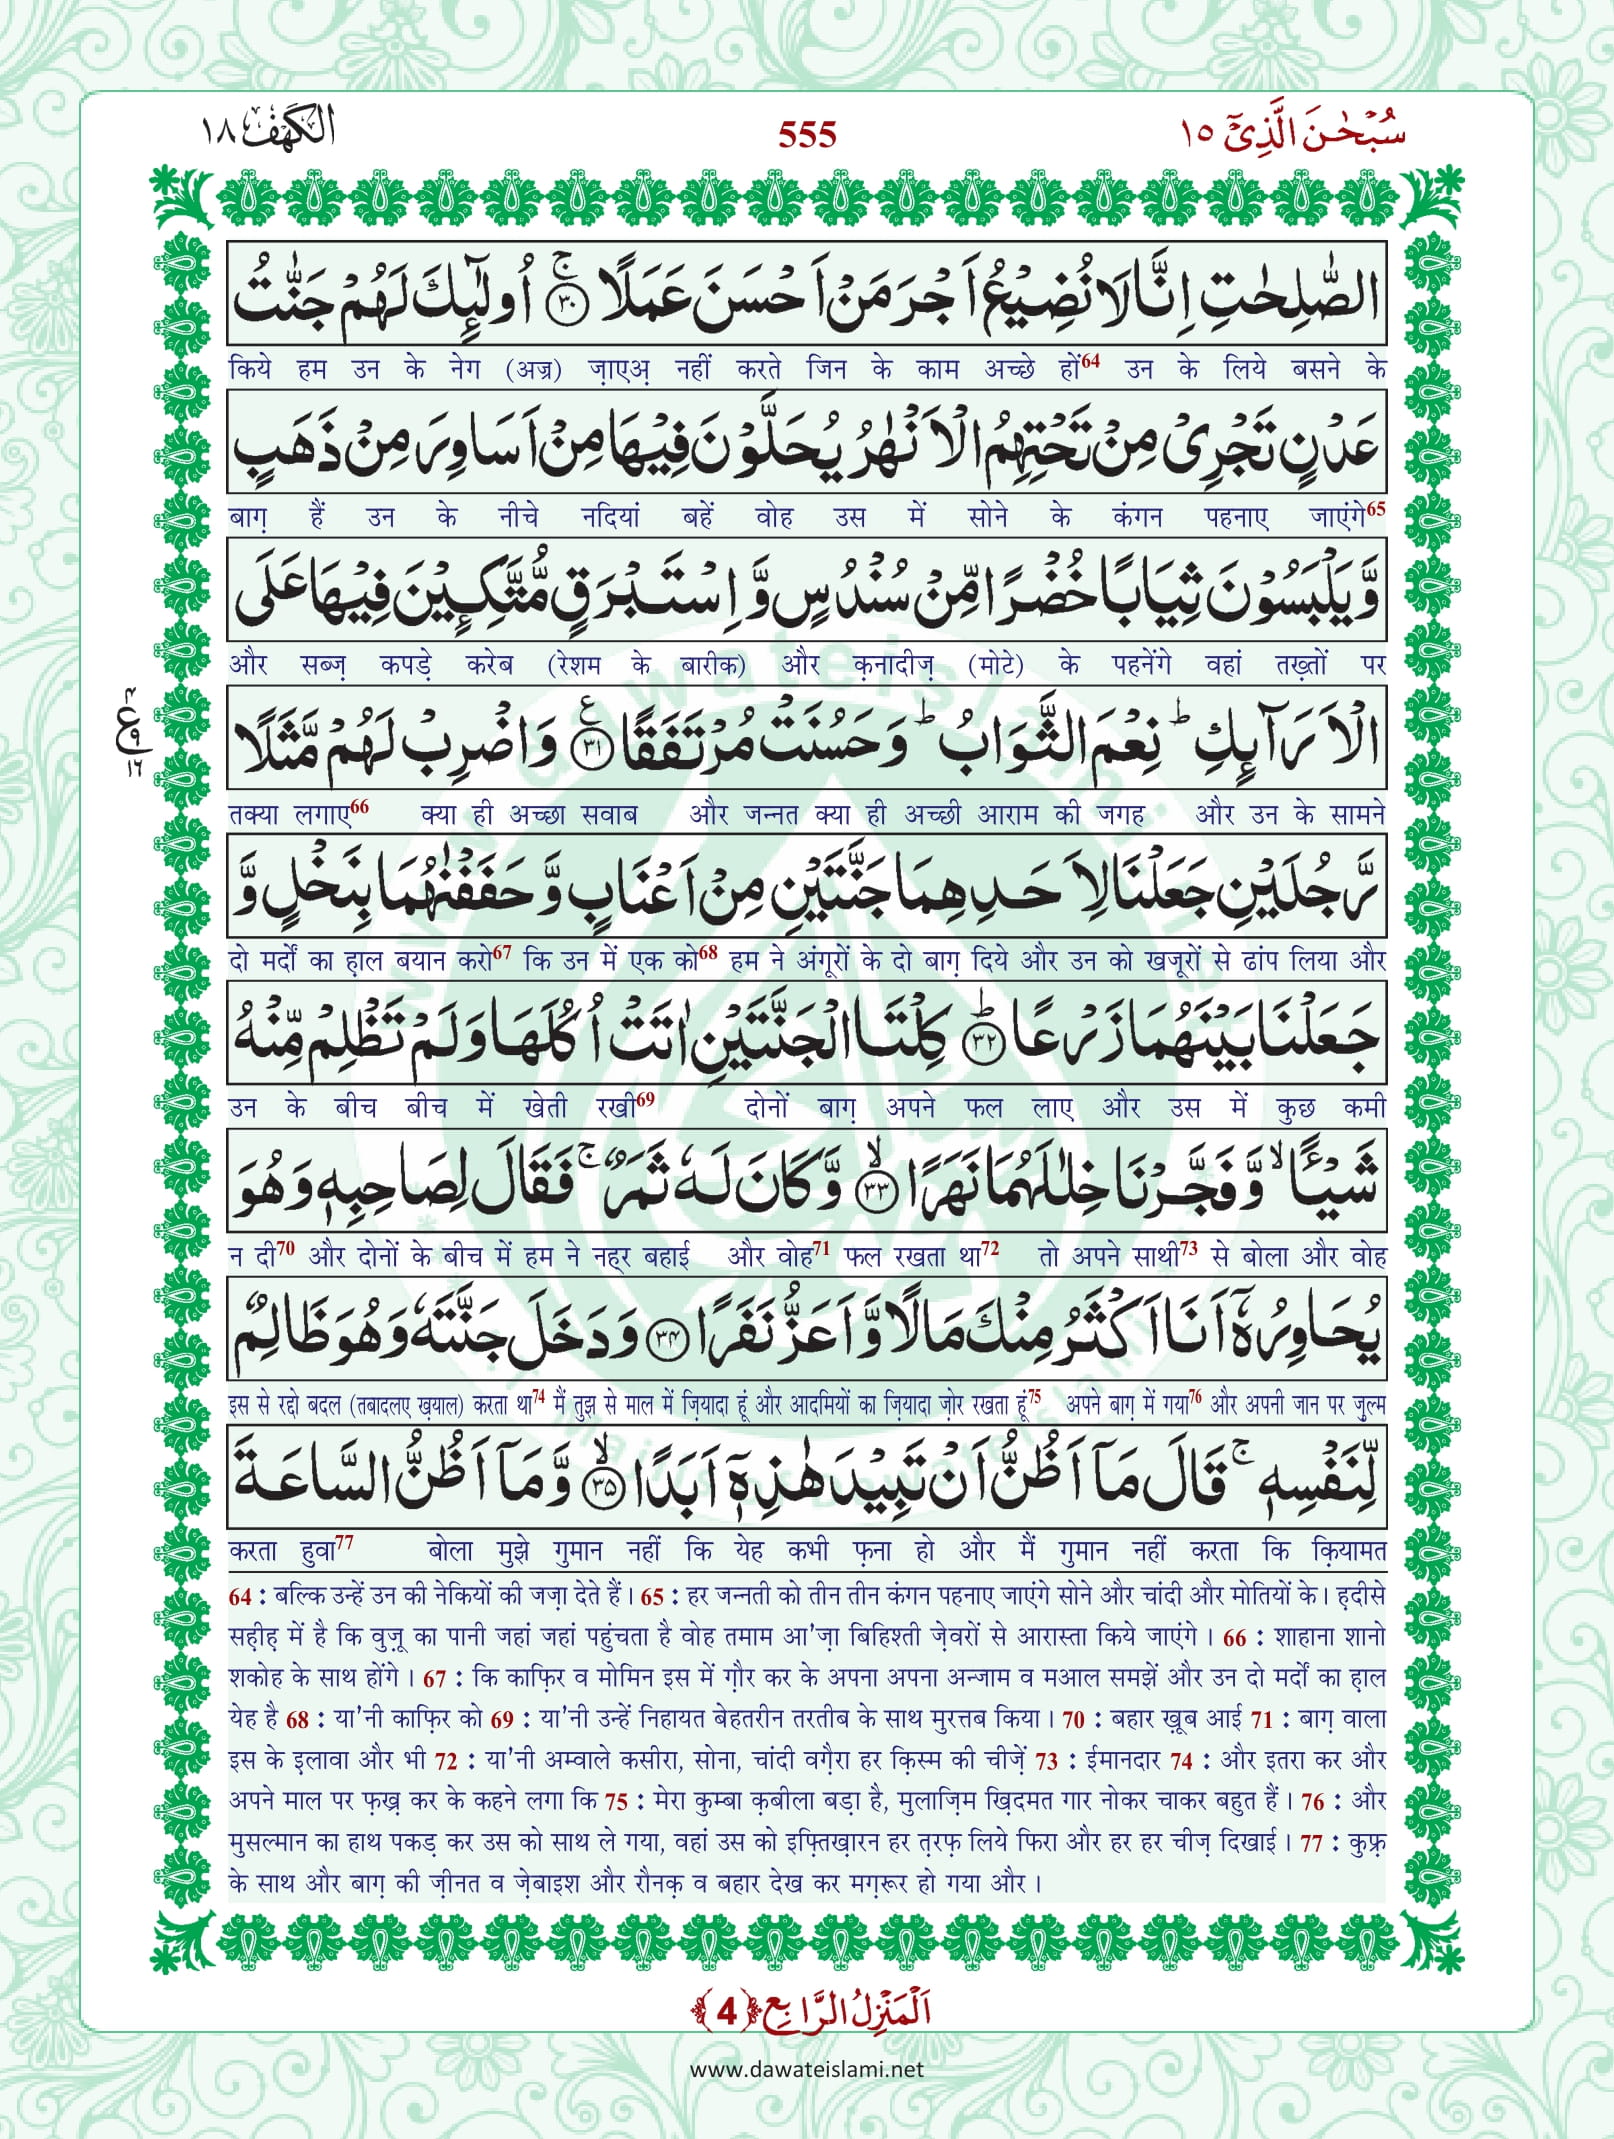 الكهف ١٨ 555 سُبْحٰنَ الَّذِیْۤ ١٥
الصّٰلِحٰتِ اِنَّا لَا نُضِیْعُ اَجْرَ مَنْ اَحْسَنَ عَمَلًاۚ۝۳۰ اُولٰٓىِٕكَ لَهُمْ جَنّٰتُ
किये हम उन के नेग (अज्र) ज़ाएअ़ नहीं करते जिन के काम अच्छे हों64 उन के लिये बसने के
عَدْنٍ تَجْرِیْ مِنْ تَحْتِهِمُ الْاَنْهٰرُ یُحَلَّوْنَ فِیْهَا مِنْ اَسَاوِرَ مِنْ ذَهَبٍ
बाग़ हैं उन के नीचे नदियां बहें वोह उस में सोने के कंगन पहनाए जाएंगे65
وَّ یَلْبَسُوْنَ ثِیَابًا خُضْرًا مِّنْ سُنْدُسٍ وَّ اِسْتَبْرَقٍ مُّتَّكِـِٕیْنَ فِیْهَا عَلَى
और सब्ज़ कपड़े करेब (रेशम के बारीक) और क़नादीज़ (मोटे) के पहनेंगे वहां तख़्तों पर
الْاَرَآىِٕكِؕ نِعْمَ الثَّوَابُؕ وَ حَسُنَتْ مُرْتَفَقًا۠۝۳۱ وَ اضْرِبْ لَهُمْ مَّثَلًا
ع ۴ ۹ ۱٦
तक्या लगाए66 क्या ही अच्छा सवाब और जन्नत क्या ही अच्छी आराम की जगह और उन के सामने
رَّجُلَیْنِ جَعَلْنَا لِاَحَدِهِمَا جَنَّتَیْنِ مِنْ اَعْنَابٍ وَّ حَفَفْنٰهُمَا بِنَخْلٍ وَّ
दो मर्दों का ह़ाल बयान करो67 कि उन में एक को68 हम ने अंगूरों के दो बाग़ दिये और उन को खजूरों से ढांप लिया और
جَعَلْنَا بَیْنَهُمَا زَرْعًاؕ۝۳۲ كِلْتَا الْجَنَّتَیْنِ اٰتَتْ اُكُلَهَا وَ لَمْ تَظْلِمْ مِّنْهُ
उन के बीच बीच में खेती रखी69 दोनों बाग़ अपने फल लाए और उस में कुछ कमी
شَیْــٴًـاۙ وَّ فَجَّرْنَا خِلٰلَهُمَا نَهَرًاۙ۝۳۳ وَّ كَانَ لَهٗ ثَمَرٌۚ فَقَالَ لِصَاحِبِهٖ وَ هُوَ
न दी70 और दोनों के बीच में हम ने नह्र बहाई और वोह71 फल रखता था72 तो अपने साथी73 से बोला और वोह
یُحَاوِرُهٗۤ اَنَا اَكْثَرُ مِنْكَ مَالًا وَّ اَعَزُّ نَفَرًا۝۳۴ وَ دَخَلَ جَنَّتَهٗ وَ هُوَ ظَالِمٌ
इस से रद्दो बदल (तबादलए ख़याल) करता था74 मैं तुझ से माल में ज़ियादा हूं और आदमियों का ज़ियादा ज़ोर रखता हूं75 अपने बाग़ में गया76 और अपनी जान पर ज़ुल्म
لِّنَفْسِهٖۚ قَالَ مَاۤ اَظُنُّ اَنْ تَبِیْدَ هٰذِهٖۤ اَبَدًاۙ۝۳۵ وَّ مَاۤ اَظُنُّ السَّاعَةَ
करता हुवा77 बोला मुझे गुमान नहीं कि येह कभी फ़ना हो और मैं गुमान नहीं करता कि क़ियामत
64 : बल्कि उन्हें उन की नेकियों की जज़ा देते हैं। 65 : हर जन्नती को तीन तीन कंगन पहनाए जाएंगे सोने और चांदी और मोतियों के। ह़दीसे
सह़ीह़ में है कि वुज़ू का पानी जहां जहां पहुंचता है वोह तमाम आ'ज़ा बिहिश्ती ज़ेवरों से आरास्ता किये जाएंगे। 66 : शाहाना शानो
शकोह के साथ होंगे। 67 : कि काफ़िर व मोमिन इस में ग़ौर कर के अपना अपना अन्जाम व मआल समझें और उन दो मर्दों का ह़ाल
येह है 68 : या'नी काफ़िर को 69 : या'नी उन्हें निहायत बेहतरीन तरतीब के साथ मुरत्तब किया। 70 : बहार ख़ूब आई 71 : बाग़ वाला
इस के इ़लावा और भी 72 : या'नी अम्वाले कसीरा, सोना, चांदी वग़ैरा हर क़िस्म की चीज़ें 73 : ईमानदार 74 : और इतरा कर और
अपने माल पर फ़ख़्र कर के कहने लगा कि 75 : मेरा कुम्बा क़बीला बड़ा है, मुलाज़िम ख़िदमत गार नोकर चाकर बहुत हैं। 76 : और
मुसल्मान का हाथ पकड़ कर उस को साथ ले गया, वहां उस को इफ़्तिख़ारन हर त़रफ़ लिये फिरा और हर हर चीज़ दिखाई। 77 : कुफ़्र
के साथ और बाग़ की ज़ीनत व ज़ेबाइश और रौनक़ व बहार देख कर मग़रूर हो गया और।
اَلْمَنْزِلُ الرَّابِع ﴿4﴾
www.dawateislami.net